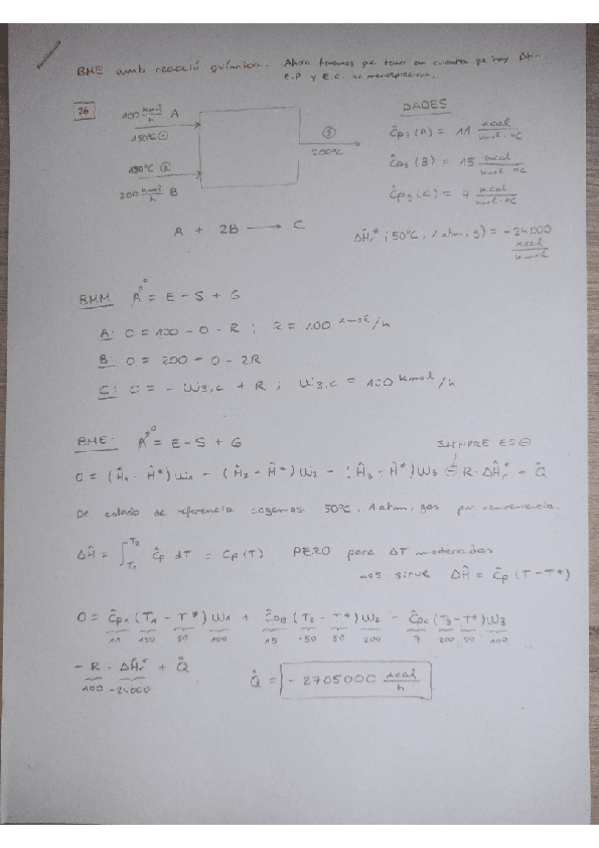 BME amb reacció química. Ahora tenemos que tener en cuenta que hay ΔHr
E.P y E.C. se menosprecian.
26
100 kmol/h A
150°C ①
150°C ②
200 kmol/h B
③
200°C
DADES
Ĉp,(A) = 11 kcal/kmol·°C
Ĉp,(B) = 15 kcal/kmol·°C
Ĉp,(C) = 7 kcal/kmol·°C
A + 2B → C
ΔĤr* (50°C, 1 atm, g) = -24000 kcal/kmol
BMM A = E - S + G
A: 0 = 100 - 0 - R ; R = 100 kmol/h
B: 0 = 200 - 0 - 2R
C: 0 = - W3,C + R ; W3,C = 100 kmol/h
BME: A = E - S + G
SIEMPRE ES ⊖
0 = (Ĥ1 - Ĥ*) W1 - (Ĥ2 - Ĥ*) W2 - (Ĥ3 - Ĥ*) W3 - R · ΔĤr* + Q̇
De estado de referencia cogemos 50°C, 1 atm, gas por conveniencia.
ΔĤ = ∫ T1 T2 Ĉp dT = Cp(T) PERO para ΔT moderadas
nos sirve ΔĤ = Ĉp (T - T*)
0 = ĈpA (T1 - T*) W1 + ĈpB (T2 - T*) W2 - ĈpC (T3 - T*) W3
11 150 50 100 15 150 50 200 7 200 50 100
- R · ΔĤr* + Q̇
100 -24000
Q̇ = -2705000 kcal/h